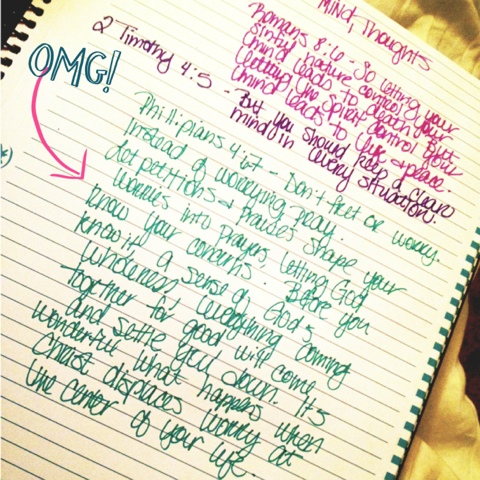 Mind, Thoughts
Romans 8:6 - So letting your
sinful nature control your
mind leads to death. But
letting the Spirit control your
mind leads to life & peace.
2 Timothy 4:5 - But you should keep a clear
mind in every situation.
OMG!
Phillipians 4:6-7 - Don't fret or worry.
Instead of worrying pray.
Let petitions & Praises shape your
worries into prayers, letting God
know your concerns. Before you
know it a sense of God's
wholeness, everything coming
together for good will come
and settle you down. It's
wonderful what happens when
Christ displaces worry at
the center of your life.